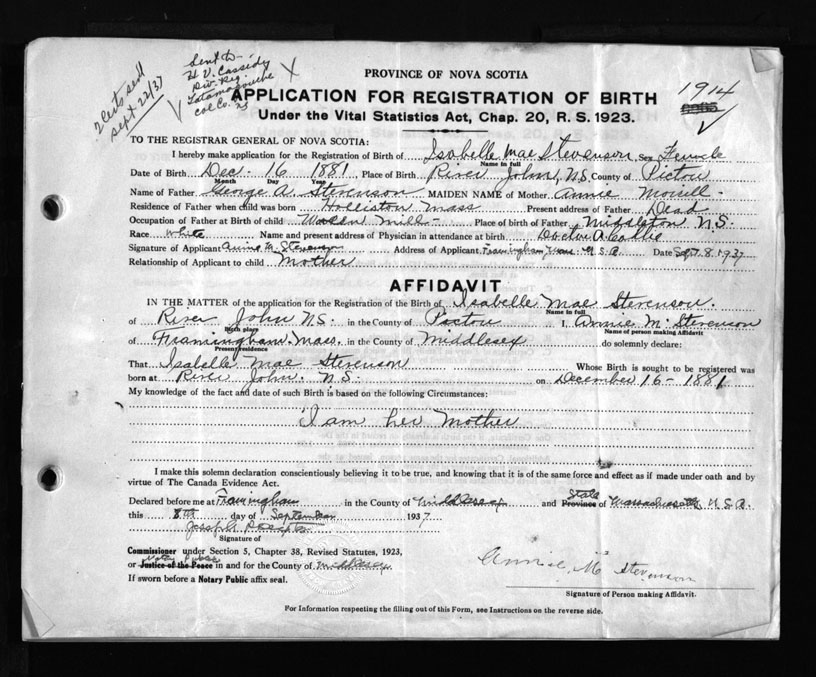 2 certs sent
Sept 22/37
Sent to
H V. Cassidy
Div. Reg.
Tatamagouche
Col. Co. NS
X
PROVINCE OF NOVA SCOTIA
1914
APPLICATION FOR REGISTRATION OF BIRTH
Under the Vital Statistics Act, Chap. 20, R. S. 1923.
TO THE REGISTRAR GENERAL OF NOVA SCOTIA:
I hereby make application for the Registration of Birth of Isabelle Mae Stevenson Sex Female
Name in full
Date of Birth Dec. 16 1881, Place of Birth River John, N.S. County of Pictou
Month Day Year
Name of Father George A. Stevenson MAIDEN NAME of Mother Annie
Residence of Father when child was born Holliston Mass Present address of Father Dead
Occupation of Father at Birth of child Woolen Mill Place of birth of Father N.S.
Race White Name and present address of Physician in attendance at birth Doctor A. Collie
Signature of Applicant Annie M. Stevenson Address of Applicant Framingham Mass. U.S.A. Date Sept. 8. 1937
Relationship of Applicant to child Mother
AFFIDAVIT
IN THE MATTER of the application for the Registration of the Birth of Isabelle Mae Stevenson.
Name in full
of River John N.S. in the County of Pictou I, Annie M. Stevenson
Birth place Name of person making Affidavit
of Framingham. Mass. in the County of Middlesex do solemnly declare:
Present residence
That Isabelle Mae Stevenson Whose Birth is sought to be registered was
born at River John. N.S. on December 16 - 1881
My knowledge of the fact and date of such Birth is based on the following Circumstances:
I am her Mother
I make this solemn declaration conscientiously believing it to be true, and knowing that it is of the same force and effect as if made under oath and by
virtue of The Canada Evidence Act.
Declared before me at Framingham in the County of Middlesex and State Province of Massachusetts U.S.A.
this 8th day of September 1937
Joseph
Signature of
Commissioner under Section 5, Chapter 38, Revised Statutes, 1923,
Notary Public
or Justice of the Peace in and for the County of Middlesex
If sworn before a Notary Public affix seal.
Annie M Stevenson
Signature of Person making Affidavit.
For Information respecting the filling out of this Form, see Instructions on the reverse side.